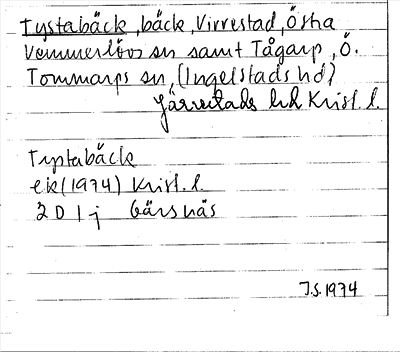 Tystabäck, bäck, Virrestad, Östra
Vemmerlövs sn samt Tågarp, Ö.
Tommarps sn, (Ingelstads hd)
Järrestads hd Krist. l.
Tystabäck
ek (1974) Krist. l.
2 D 1 j Gärsnäs
J.S. 1974